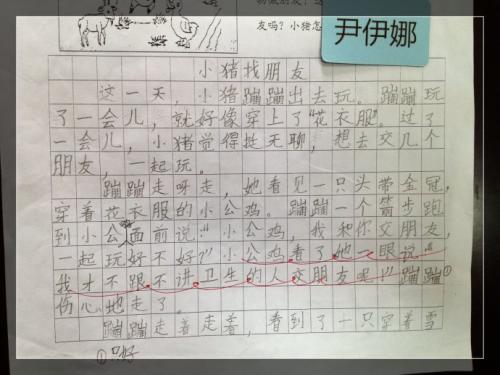 友吗？小猪怎
尹伊娜
小猪找朋友
这一天，小猪蹦蹦出去玩。蹦蹦玩
了一会儿，就好像穿上了“花衣服”。过了
一会儿，小猪觉得挺无聊，想去交几个
朋友，一起玩。
蹦蹦走呀走，她看见一只头带金冠，
穿着花衣服的小公鸡。蹦蹦一个箭步跑
到小公鸡面前说：“小公鸡，我和你交朋友，
一起玩好不好？”小公鸡看了她一眼说：“
我才不跟不讲卫生的人交朋友呢！”蹦蹦①
伤心地走了。
蹦蹦走着走着，看到了一只穿着雪
①只好